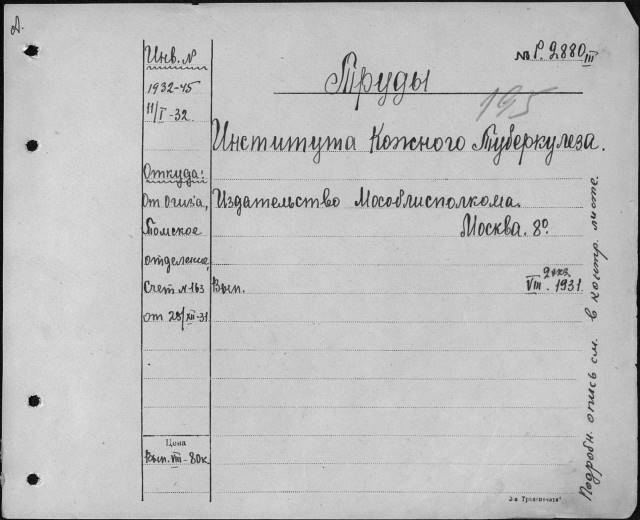 Д.
Инв. №
1932-45
11/I-32.
Откуда:
От Огиз'а,
Томское
отделение,
Счет № 163
от 28/XII-31
Цена
Вып. VIII - 80к
№ Р. 2880 III
Труды
195
Института Кожного Туберкулеза.
Издательство Мособлисполкома.
Москва. 8º.
2 экз.
Вып. VIII. 1931.
Подробн. опись см. в контр. листе.